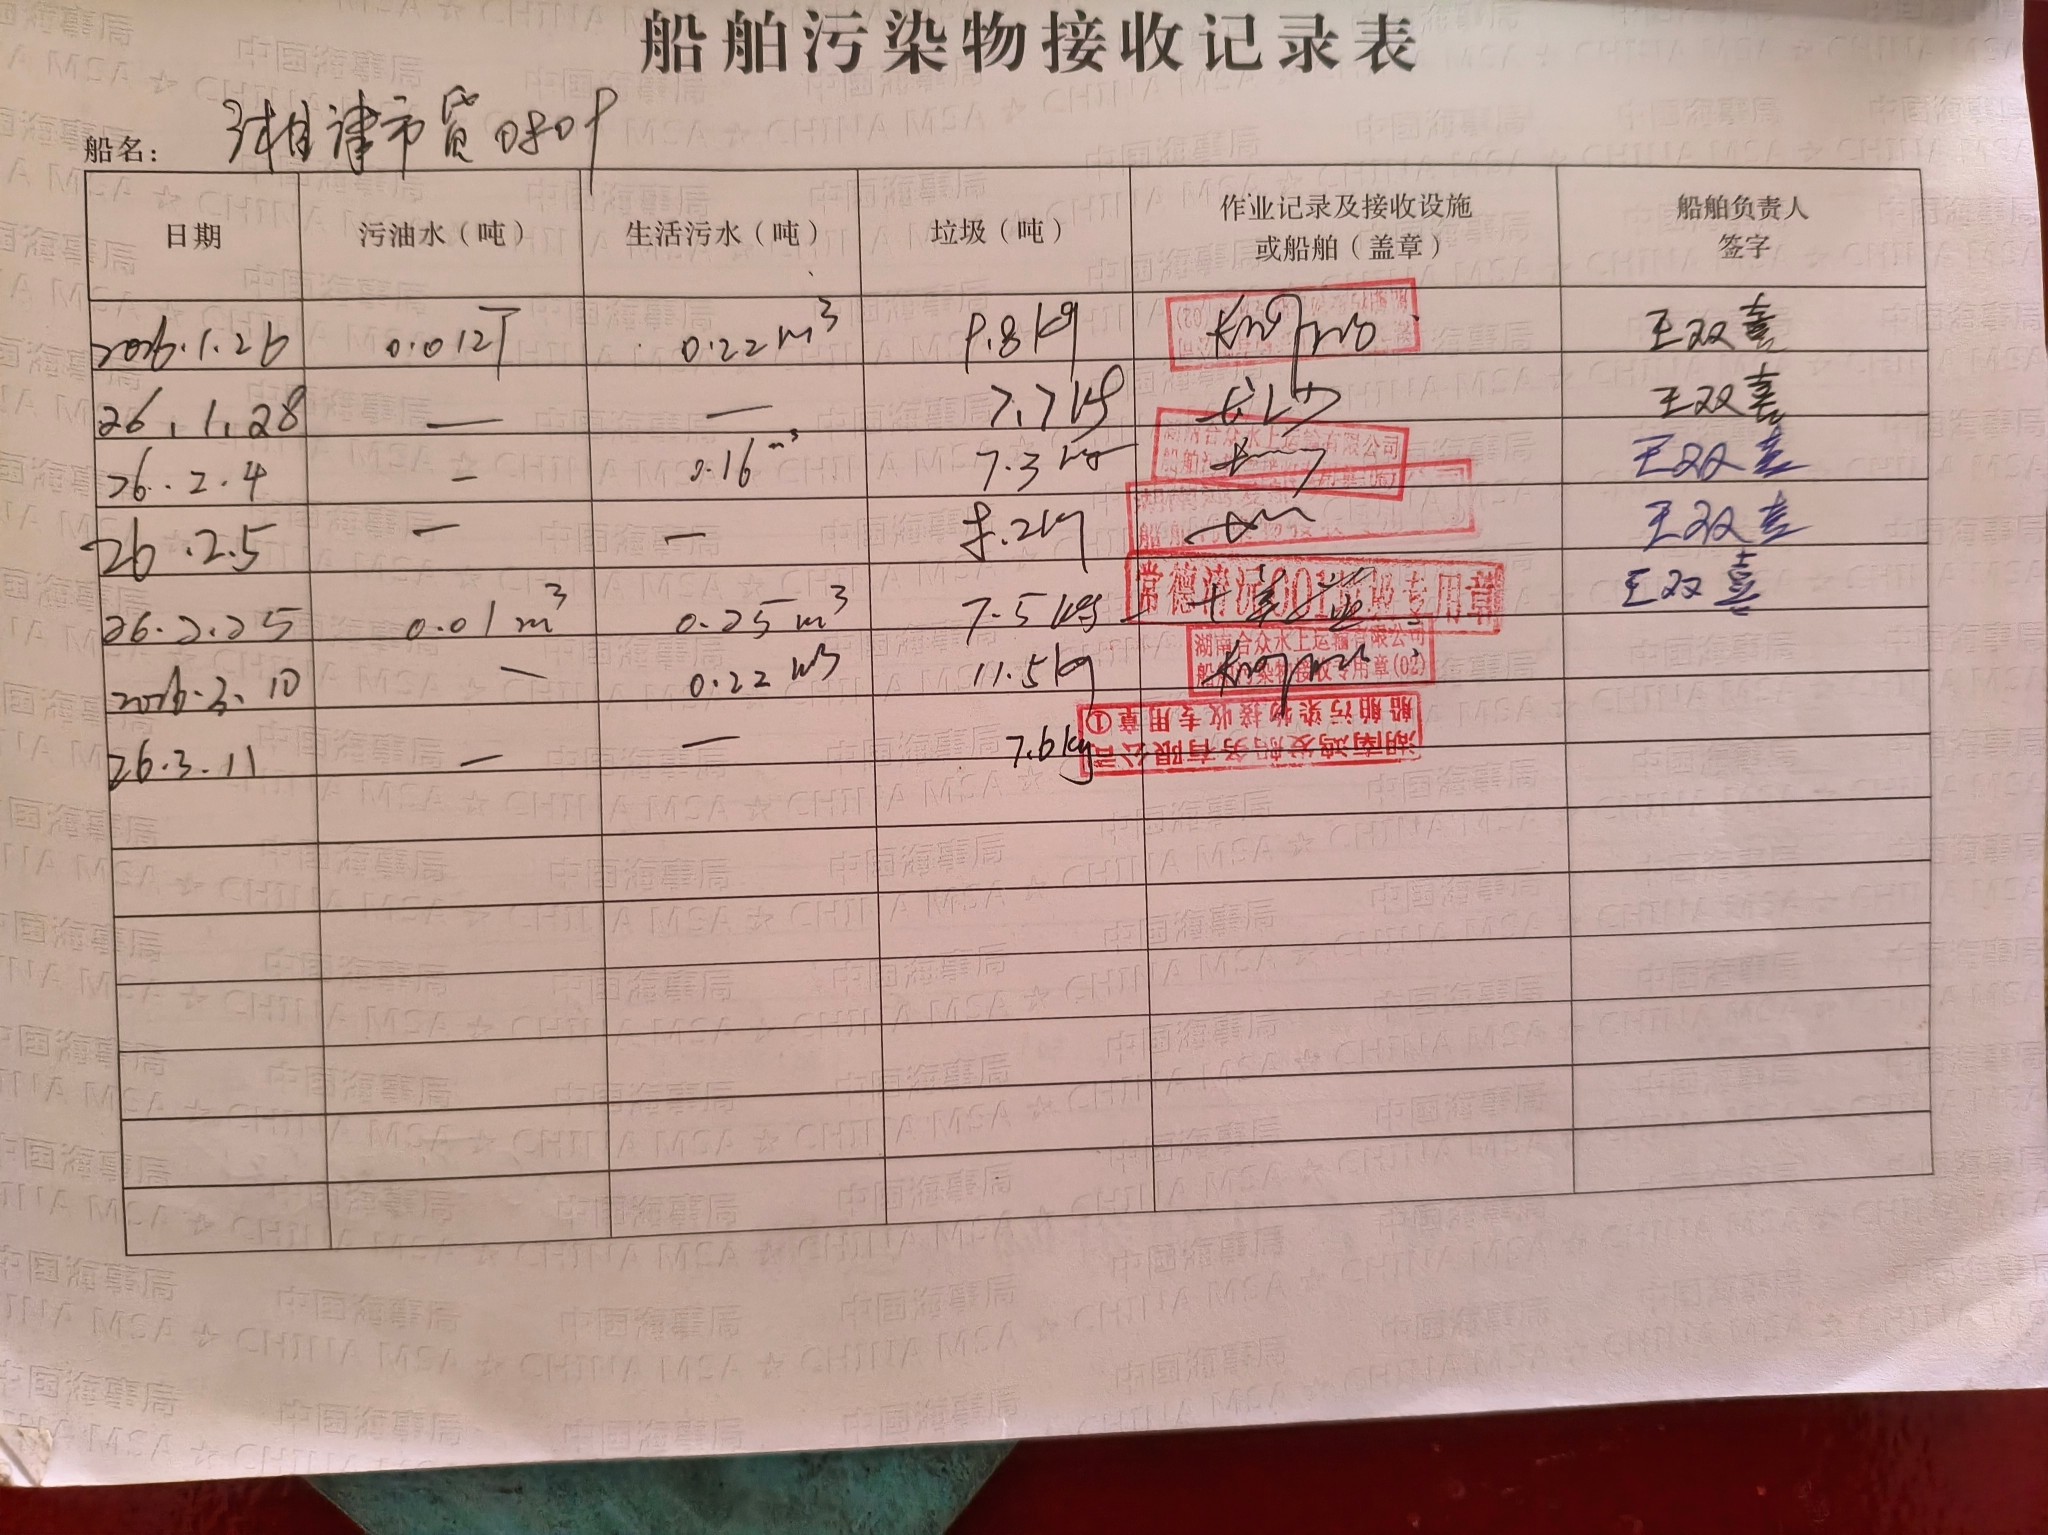 船舶污染物接收记录表
船名: 湘津市货
日期 污油水(吨) 生活污水(吨) 垃圾(吨) 作业记录及接收设施或船舶(盖章) 船舶负责人签字
2026.1.26 0.012T 0.22m³ 9.8kg 王双喜
26.1.28 — — 7.7kg 王双喜
26.2.4 — 0.16m³ 7.3kg 湖南合众水上运输有限公司 王双喜
26.2.5 — — .2kg 王双喜
26.2.25 0.01m³ 0.25m³ 7.5kg 常德清污001 专用章 王双喜
2026.3.10 — 0.22m³ 11.5kg 湖南合众水上运输有限公司 船舶污染物接收专用章(02)
26.3.11 — — 7.6kg 湖南鸿发船务有限公司 船舶污染物接收专用章①
中国海事局
CHINA MSA ☆ CHINA MSA